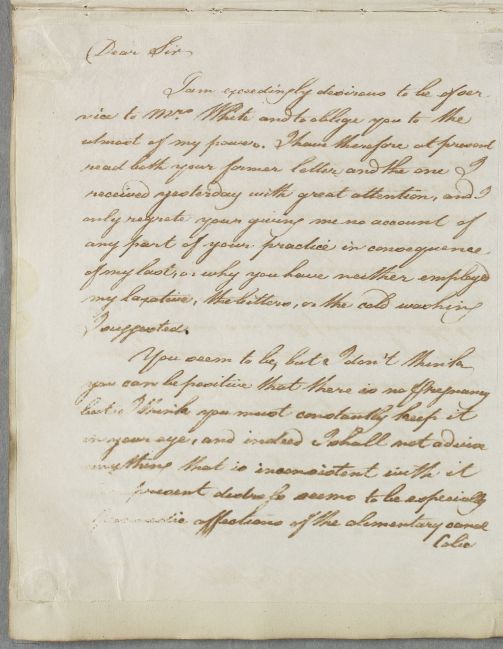 Dear Sir
I am exceedingly desirous to be of ser
vice to Mrs. White and to oblige you to the
utmost of my power. I have therefore at present
read both your former letter and the one I
received yesterday with great attention, and I
only regrete your giving me no account of
any part of your practice in consequence
of my last, or why you have neither employed
my laxative, the bitters, or the cold washing
I suggested.
You seem to be, but I don't think
you can be positive that there is no Pregnancy
but I think you must constantly keep it
in your eye, and indeed I shall not advise
anything that is inconsistent with it
present distress seems to be especially
affections of the alimentary canal
Colic